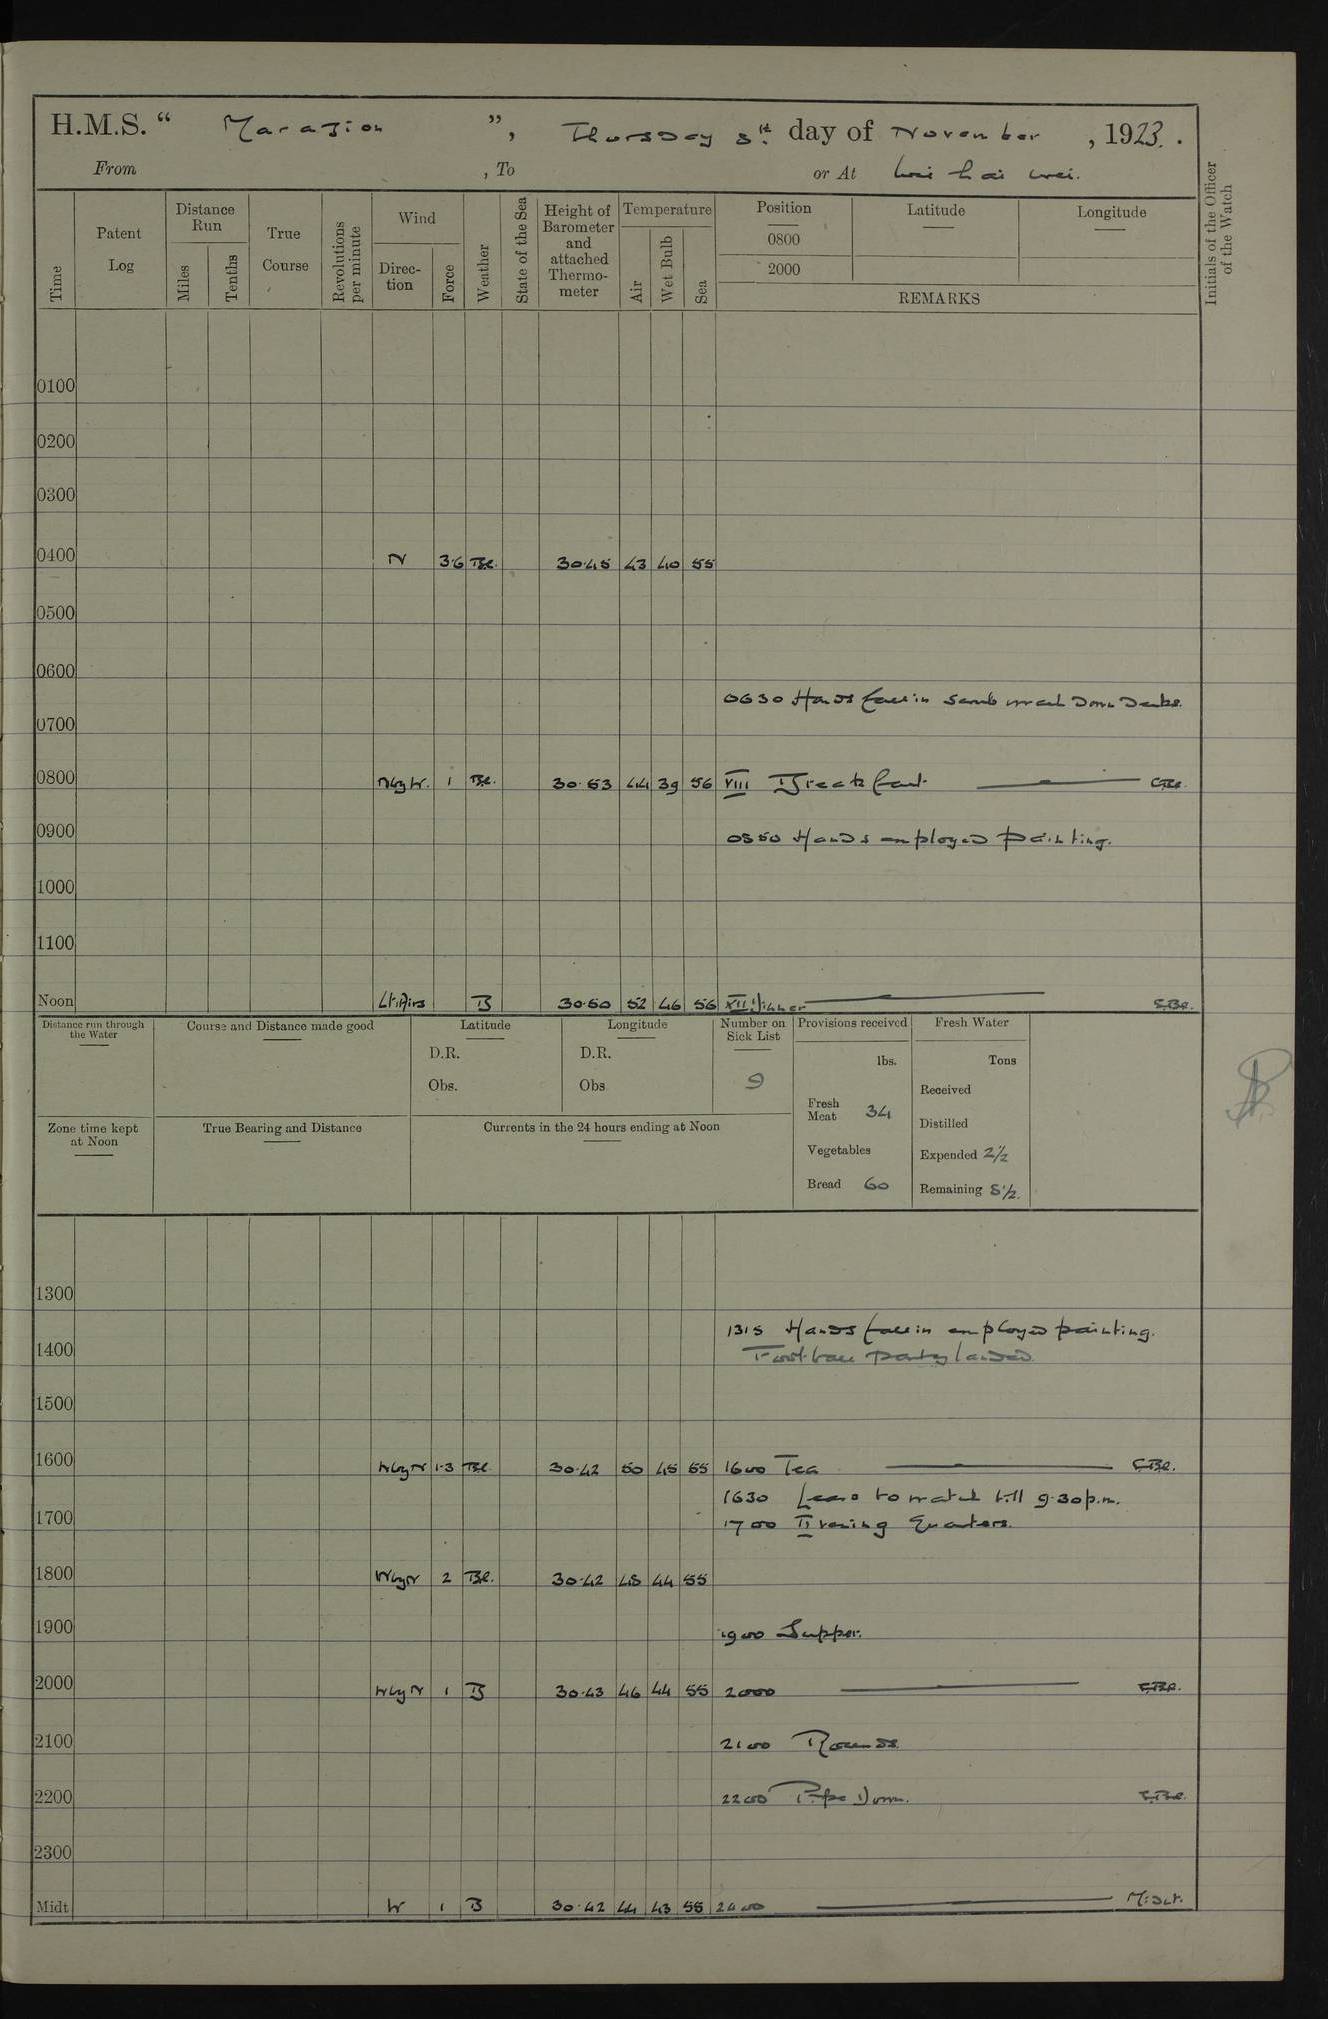 H.M.S. " Marazion ", Thursday 8th day of November , 1923 .
From , To or At Wei hai wei.
Time
Patent Log
Distance Run
Miles
Tenths
True Course
Revolutions per minute
Wind
Direction
Force
Weather
State of the Sea
Height of Barometer and attached Thermometer
Temperature
Air
Wet Bulb
Sea
Position
0800
2000
Latitude
Longitude
REMARKS
Initials of the Officer of the Watch
0100
0200
0300
0400 N 3·6 Bc. 30·45 43 40 55
0500
0600
0630 Hands fall in scrub wash Down Decks.
0700
0800 N by W. 1 Bc. 30·53 44 39 56 VIII Breakfast
0900
0850 Hands employed painting.
1000
1100
Noon Lt. Airs B 30·50 52 46 56 XII Dinner
Distance run through the Water
Course and Distance made good
Latitude
D.R.
Obs.
Longitude
D.R.
Obs
Number on Sick List
9
Provisions received
lbs.
Fresh Meat 34
Vegetables
Bread 60
Fresh Water
Tons
Received
Distilled
Expended 2½
Remaining 8½
Zone time kept at Noon
True Bearing and Distance
Currents in the 24 hours ending at Noon
1300
1315 Hands fall in employed painting.
1400
Football Party landed
1500
1600 W by N 1·3 Bc. 30·42 50 45 55 1600 Tea
1630 Leave to watch till 9·30 p.m.
1700
1700 Evening Quarters.
1800 W by N 2 Bc. 30·42 48 44 55
1900 1900 Supper.
2000 W by N 1 B 30·43 46 44 55 2000
2100 2100 Rounds.
2200 2200 Pipe Down.
2300
Midt W 1 B 30·42 44 43 55 2400